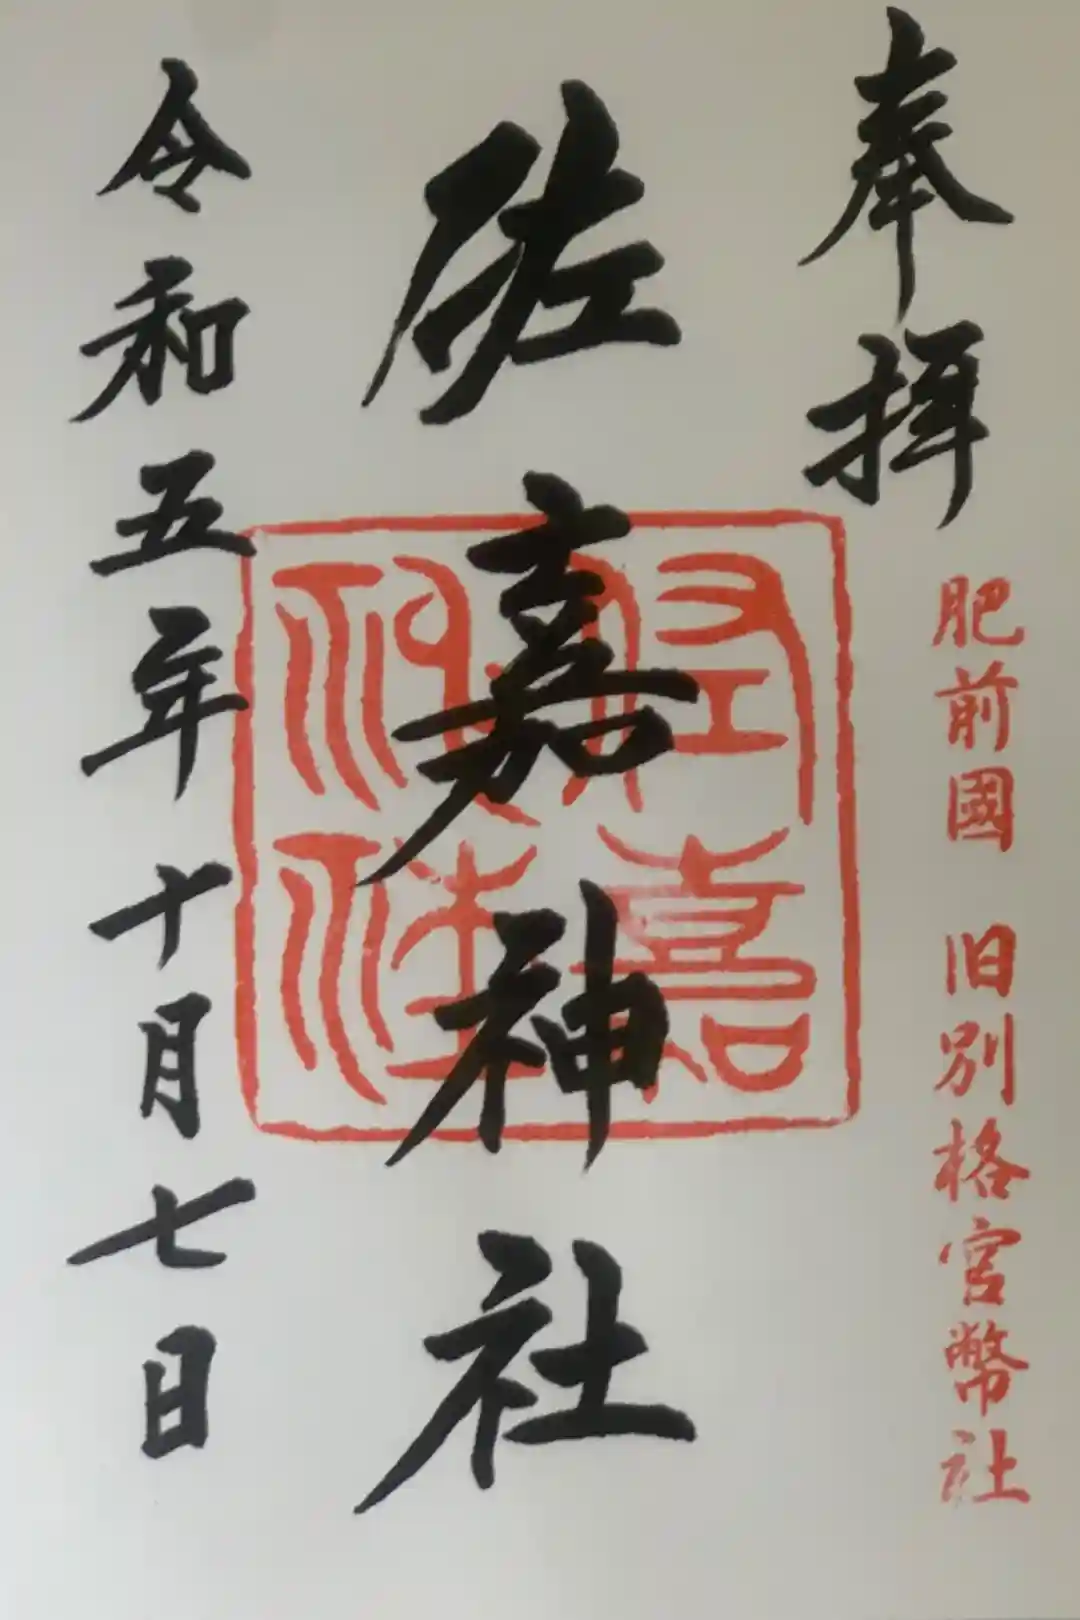 奉拝
肥前國 旧別格官幣社
佐嘉神社
佐嘉
神社
令和五年十月七日